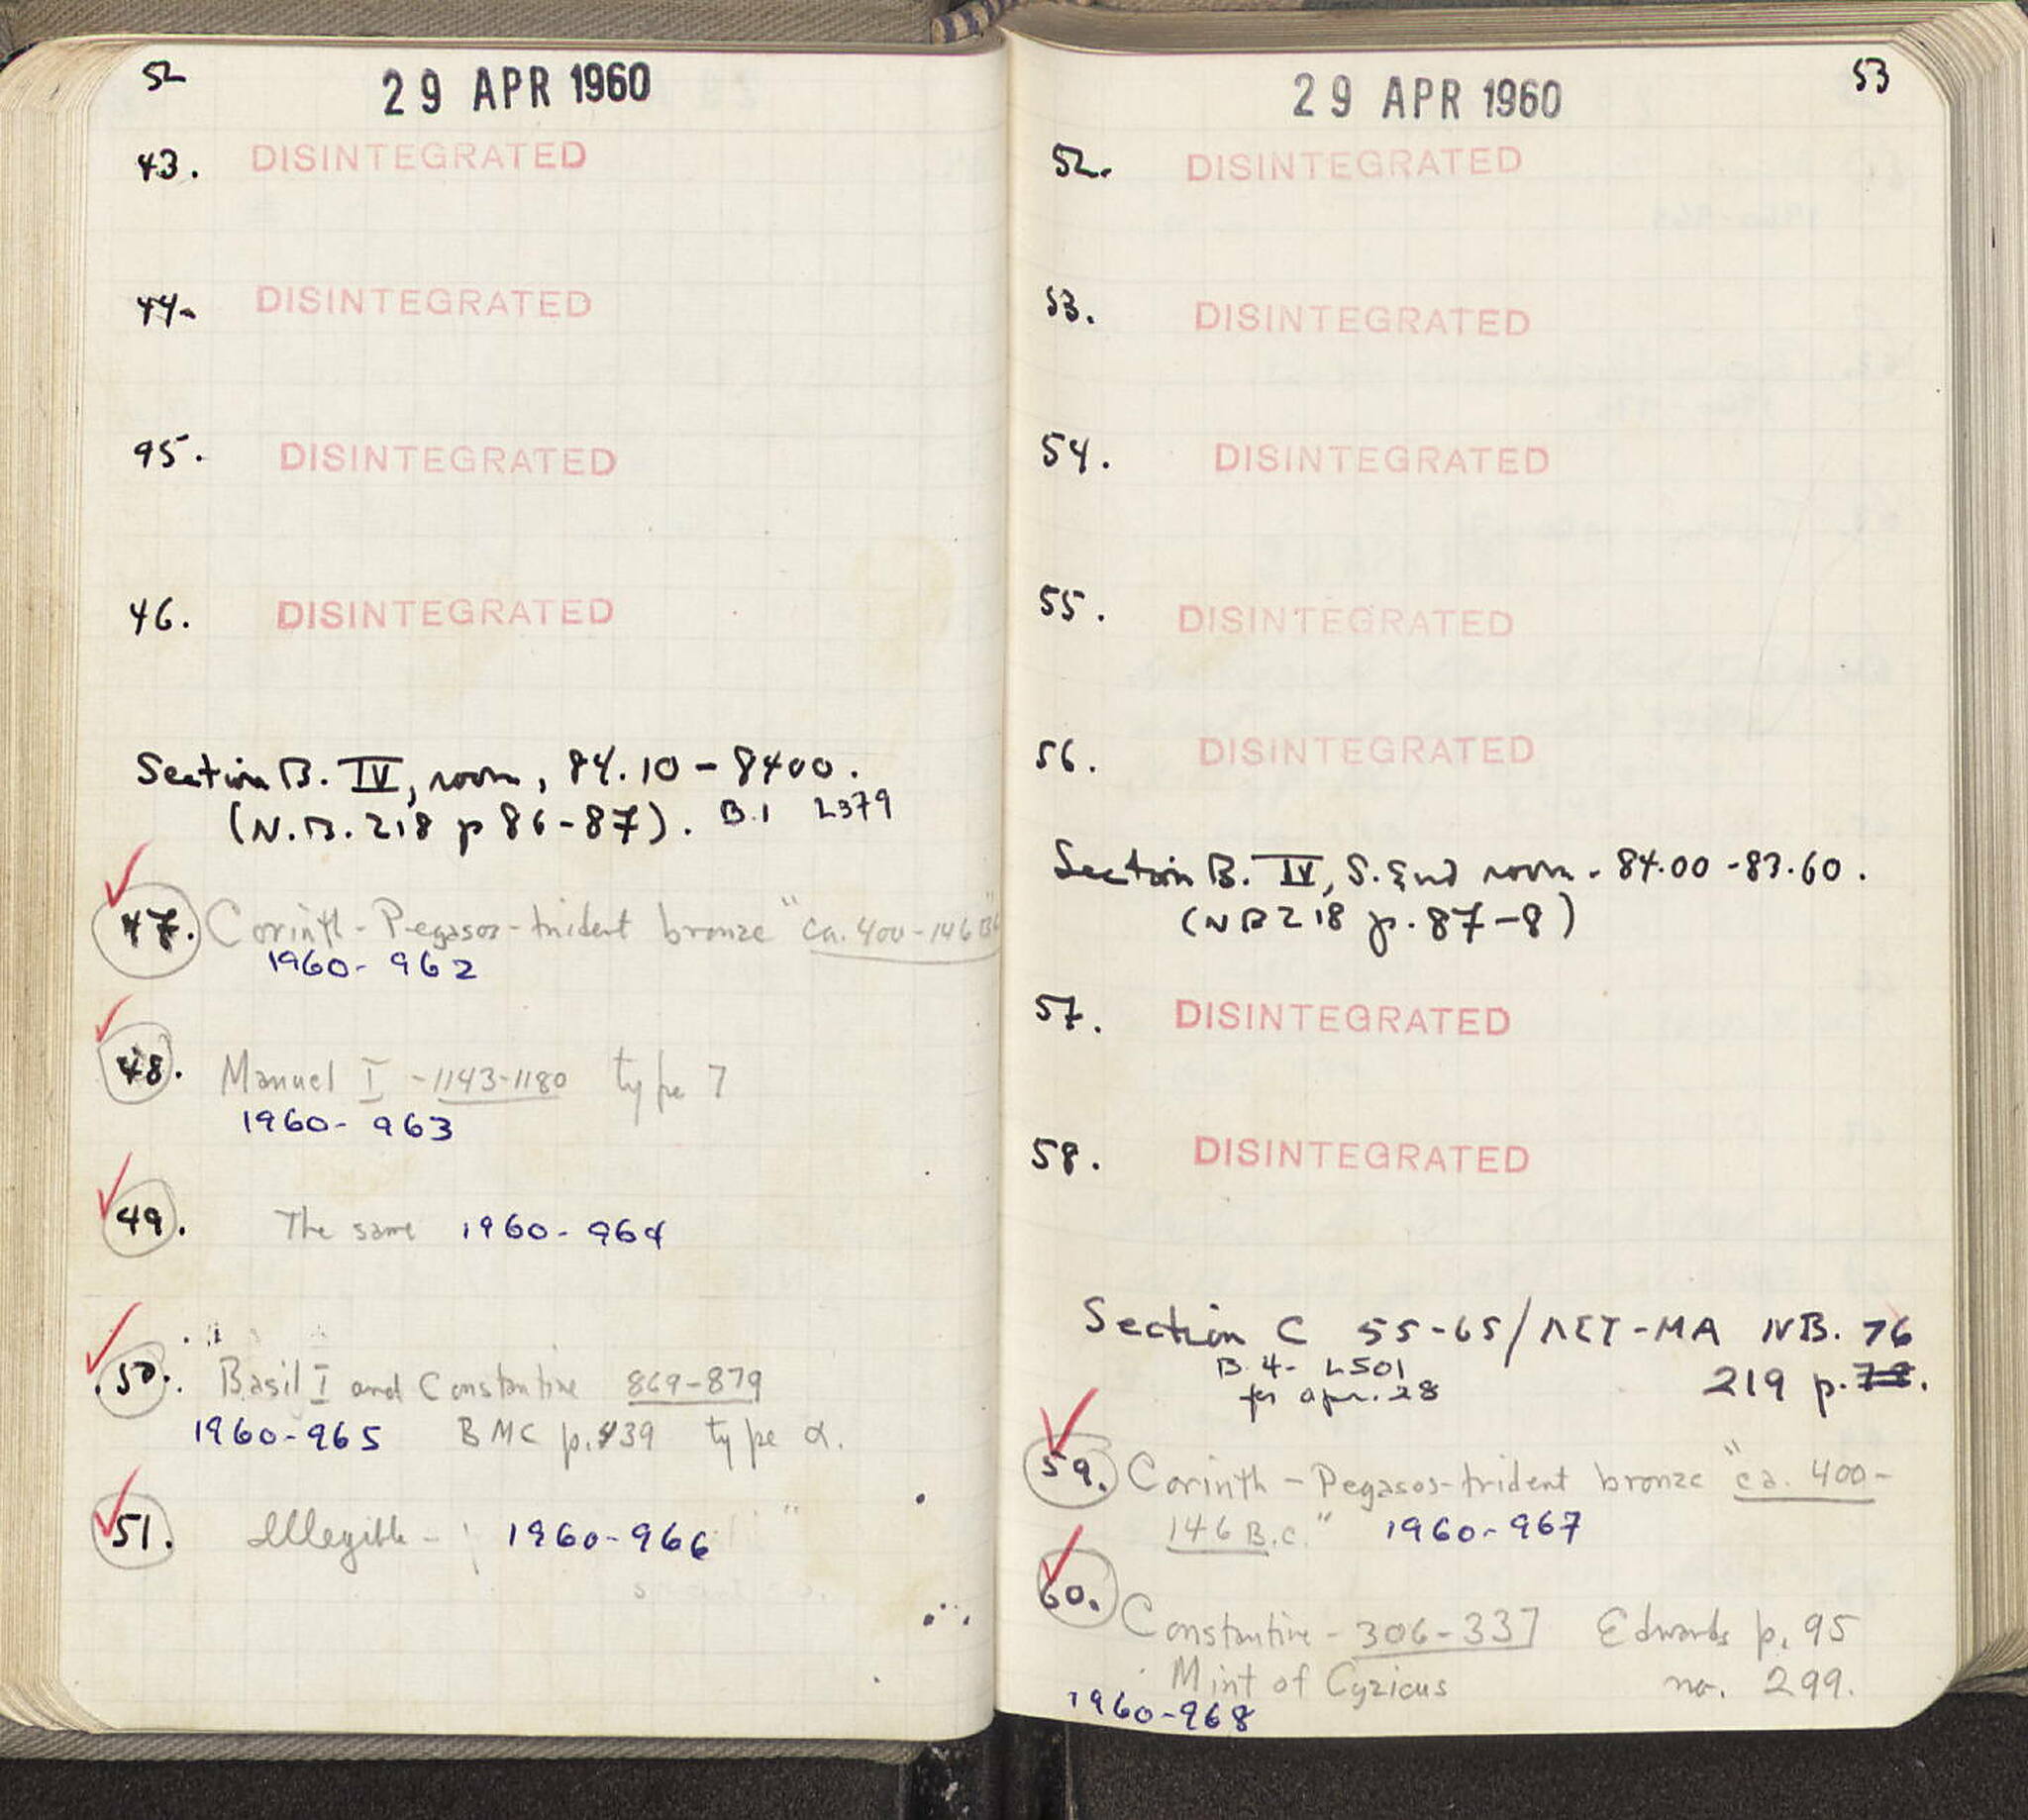 52
29 APR 1960
43. DISINTEGRATED
44. DISINTEGRATED
45. DISINTEGRATED
46. DISINTEGRATED
Section B. IV, room, 84.10 - 8400.
(N.B. 218 p 86-87). B.1 L379
47. Corinth - Pegasos - trident bronze "ca. 400-146 BC"
1960-962
48. Manuel I - 1143-1180 type 7
1960-963
49. The same 1960-964
50. Basil I and Constantine 869-879
1960-965 BMC p. 439 type α.
51. Illegible - 1960-966
53
29 APR 1960
52. DISINTEGRATED
53. DISINTEGRATED
54. DISINTEGRATED
55. DISINTEGRATED
56. DISINTEGRATED
Section B. IV, S. End room - 84.00 - 83.60.
(NB 218 p. 87-8)
57. DISINTEGRATED
58. DISINTEGRATED
Section C 55-65/ΛΕΤ-ΜΑ NB. 76
B. 4- L501 219 p. 78.
for apr. 28
59. Corinth - Pegasos-trident bronze "ca. 400-
146 B.C." 1960-967
60. Constantine - 306-337 Edwards p. 95
Mint of Cyzicus no. 299.
1960-968